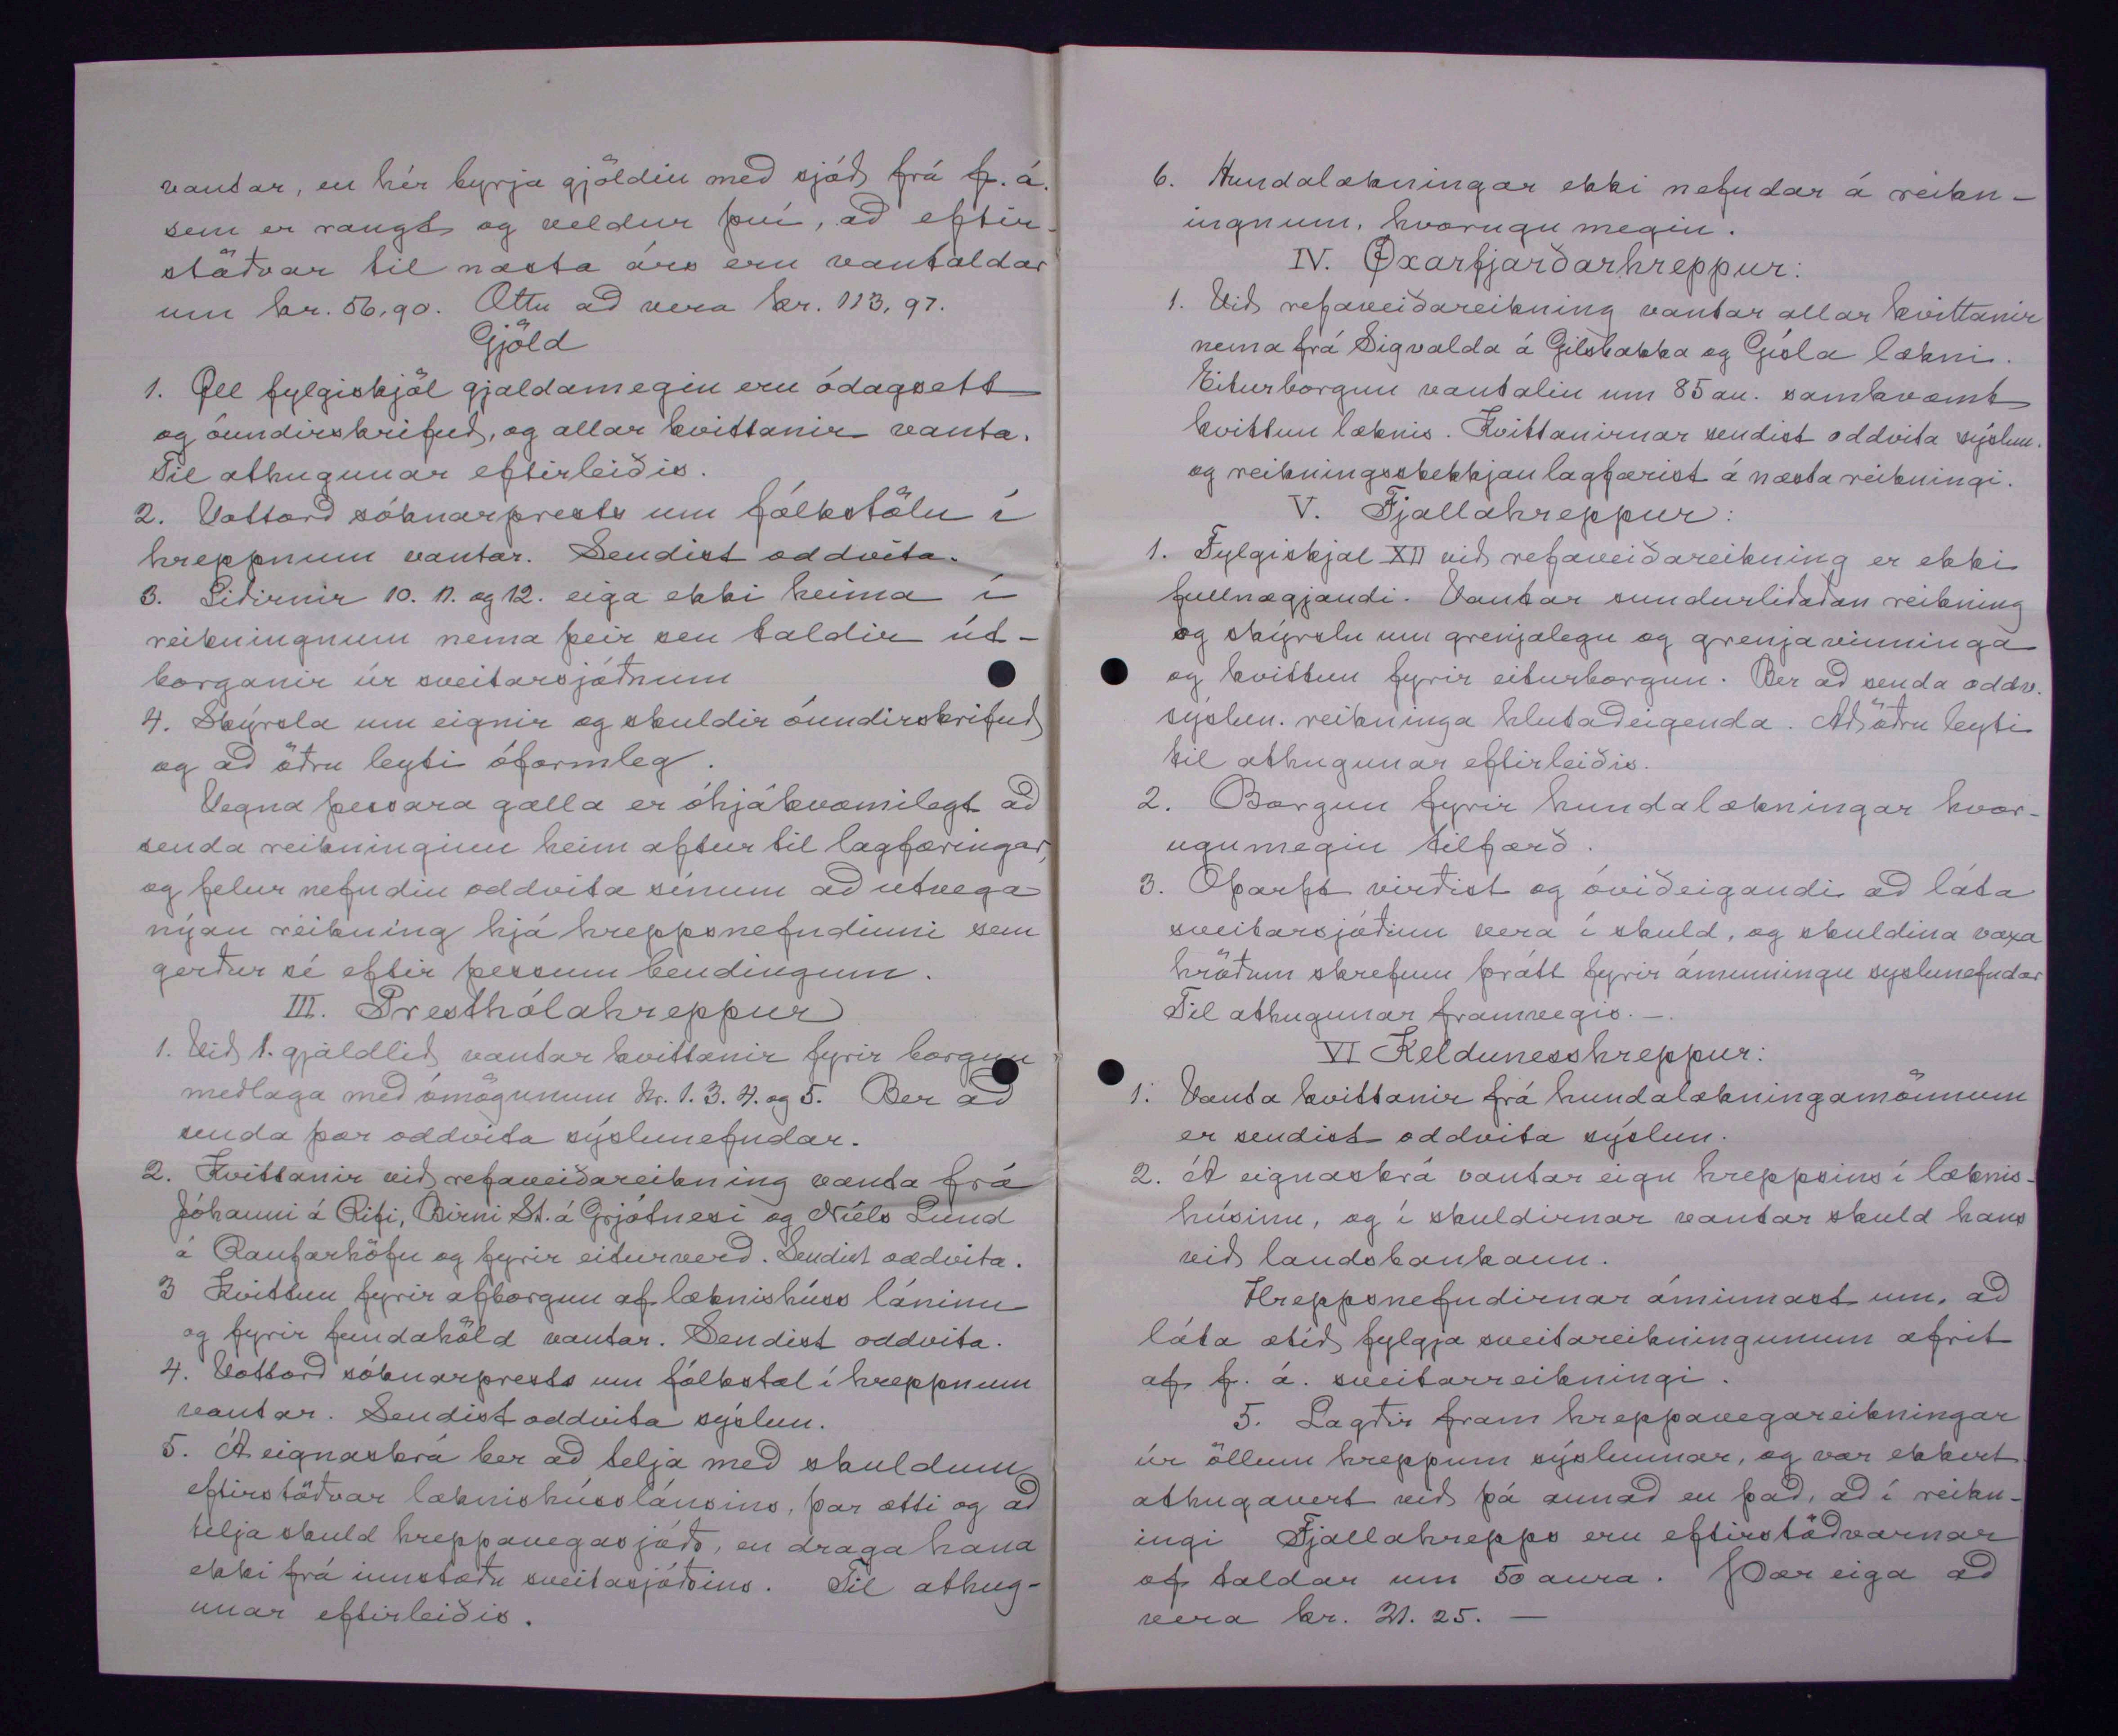 vantar, en hér byrja gjöldin með sjóð frá f. á.
sem er rangt og veldur því, að eftir-
stöðvar til næsta árs eru vantaldar
um kr. 56,90. Ættu að vera kr. 113,97.
Gjöld
1. Öll fylgiskjöl gjaldamegin eru ódagsett
og óundirskrifuð, og allar kvittanir vanta.
Til athugunar eftirleiðis.
2. Vottorð sóknarprests um fólkstölu í
hreppnum vantar. Sendist oddvita.
3. Liðirnir 10. 11. og 12. eiga ekki heima í
reikningnum nema þeir séu taldir út-
borganir úr sveitarsjóðnum
4. Skýrsla um eignir og skuldir óundirskrifuð
og að öðru leyti óformleg.
Vegna þessara galla er óhjákvæmilegt að
senda reikninginn heim aftur til lagfæringar,
og felur nefndin oddvita sínum að utvega
nýjan reikning hjá hreppsnefndinni sem
gerður sé eftir þessum bendingum.
III. Presthólahreppur
1. Við 1. gjaldlið vantar kvittanir fyrir borgun
meðlaga með ómögunum Nr. 1. 3. 4. og 5. Ber að
senda þær oddvita sýslunefndar.
2. Kvittanir við refaveiðareikning vanta frá
Jóhanni á Rifi, Birni St. á Grjótnesi og Níels Lund
á Raufarhöfn og fyrir eiturverð. Sendist oddvita.
3 Kvittun fyrir afborgun af læknishúss láninu
og fyrir fundahöld vantar. Sendist oddvita.
4. Vottorð sóknarprests um fólkstal í hreppnum
vantar. Sendist oddvita sýslun.
5. Á eignaskrá ber að telja með skuldum
eftirstöðvar læknishússlánsins, þar ætti og að
telja skuld hreppavegasjóðs, en draga hana
ekki frá innstæðu sveitasjóðsins. Til athug-
unar eftirleiðis.
6. Hundalækningar ekki nefndar á reikn-
ingnum, hvorugu megin.
IV. Öxarfjarðarhreppur:
1. Við refaveiðareikning vantar allar kvittanir
nema frá Sigvalda á Gilsbakka og Gísla lækni.
Eiturborgun vantalin um 85 au. samkvæmt
kvittun læknis. Kvittanirnar sendist oddvita sýslun.
og reikningsskekkjan lagfærist á næsta reikningi.
V. Fjallahreppur:
1. Fylgiskjal XII við refaveiðareikning er ekki
fullnægjandi. Vantar sundurliðaðan reikning
og skýrslu um grenjalegu og grenjavinninga
og kvittun fyrir eiturborgun. Ber að senda oddv.
sýslun. reikninga hlutaðeigenda. Að öðru leyti
til athugunar eftirleiðis.
2. Borgun fyrir hundalækningar hvor-
ugumegin tilfærð.
3. Óþarft virðist og óviðeigandi að láta
sveitarsjóðinn vera í skuld, og skuldina vaxa
hröðum skrefum þrátt fyrir ámunningu syslunefndar
Til athugunar framvegis. —.
VI Keldunesshreppur:
1. Vanta kvittanir frá hundalækningamönnum
er sendist oddvita sýslun.
2. Á eignaskrá vantar eign hreppsins í læknis-
húsinu, og í skuldirnar vantar skuld hans
við landsbankann.
Hreppsnefndirnar áminnast um, að
láta ætíð fylgja sveitareikningunum afrit
af f. á. sveitarreikningi.
5. Lagðir fram hreppavegareikningar
úr öllum hreppum sýslunnar, og var ekkert
athugavert við þá annað en það, að í reikn-
ingi Fjallahrepps eru eftirstöðvarnar
of taldar um 50 aura. Þær eiga að
vera kr. 31.25. —